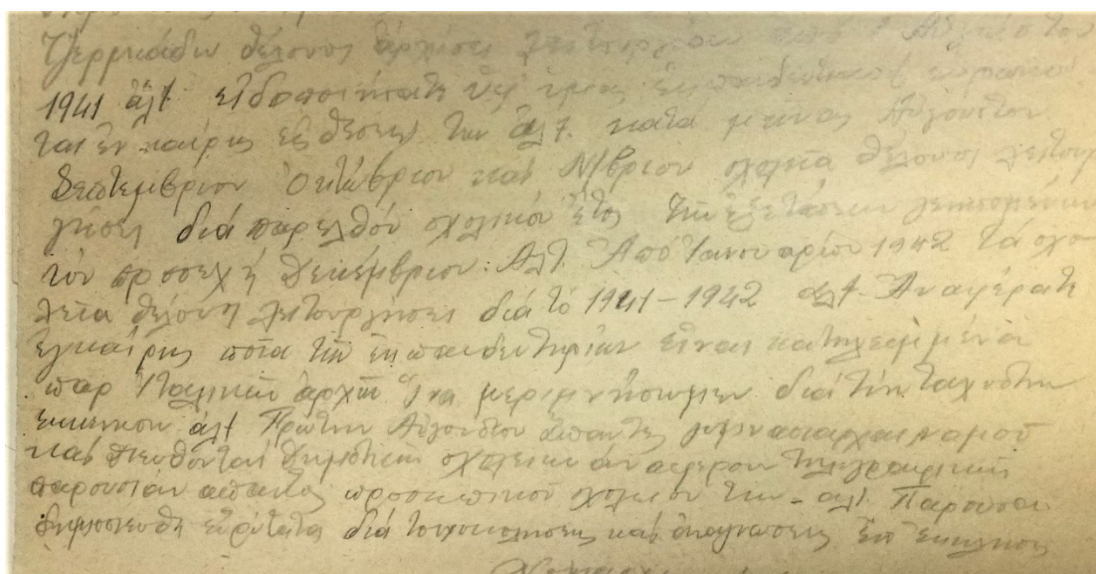 Τζερμιάδων θέλουσι ἀρχίσει λειτουργίαν ἀπό 1 Αὐγούστου
1941 ἄλτ. εἰδοποιήσατε ὑφ' ὑμᾶς ἐκπαιδευτικούς
ται ἐν καίρῳ εἰς θέσεις των ἄλτ. κατά μῆνας Αὔγουστον
Σεπτέμβριον Ὀκτώβριον καί Ν/βριον σχολεῖα θέλουσι λειτουρ
γήσει διά παρελθόν σχολικόν ἔτος τῶν ἐξετάσεων
τόν προσεχῆ Δεκέμβριον. Ἀλτ. Ἀπό Ἰανουαρίου 1942 τά σχο
λεῖα θέλουσι λειτουργήσει διά τό 1941-1942 ἀλτ. Ἀναφέρατε
ἐγκαίρως ποῖα τῶν ἐκπαιδευτηρίων εἶναι κατηλειμμένα
παρ' Ἰταλικῶν ἀρχῶν ἵνα μεριμνήσωμεν διά τήν ταχυτέραν
ἐκκένωσιν ἀλτ Πρώτην Αὐγούστου ἅπαντες γυμνασιάρχαι νομοῦ
καί διευθυνταί δημοτικῶν σχολείων ἀναφέρουν τηλεγραφικῶς
παρουσίαν παντός προσωπικοῦ σχολείου των - ἀλτ. Παροῦσα
δημοσιευθῇ εὐρύτατα διά τοιχοκολλήσεως καί ἀναγνώσεως ἐπ' ἐκκλησίας